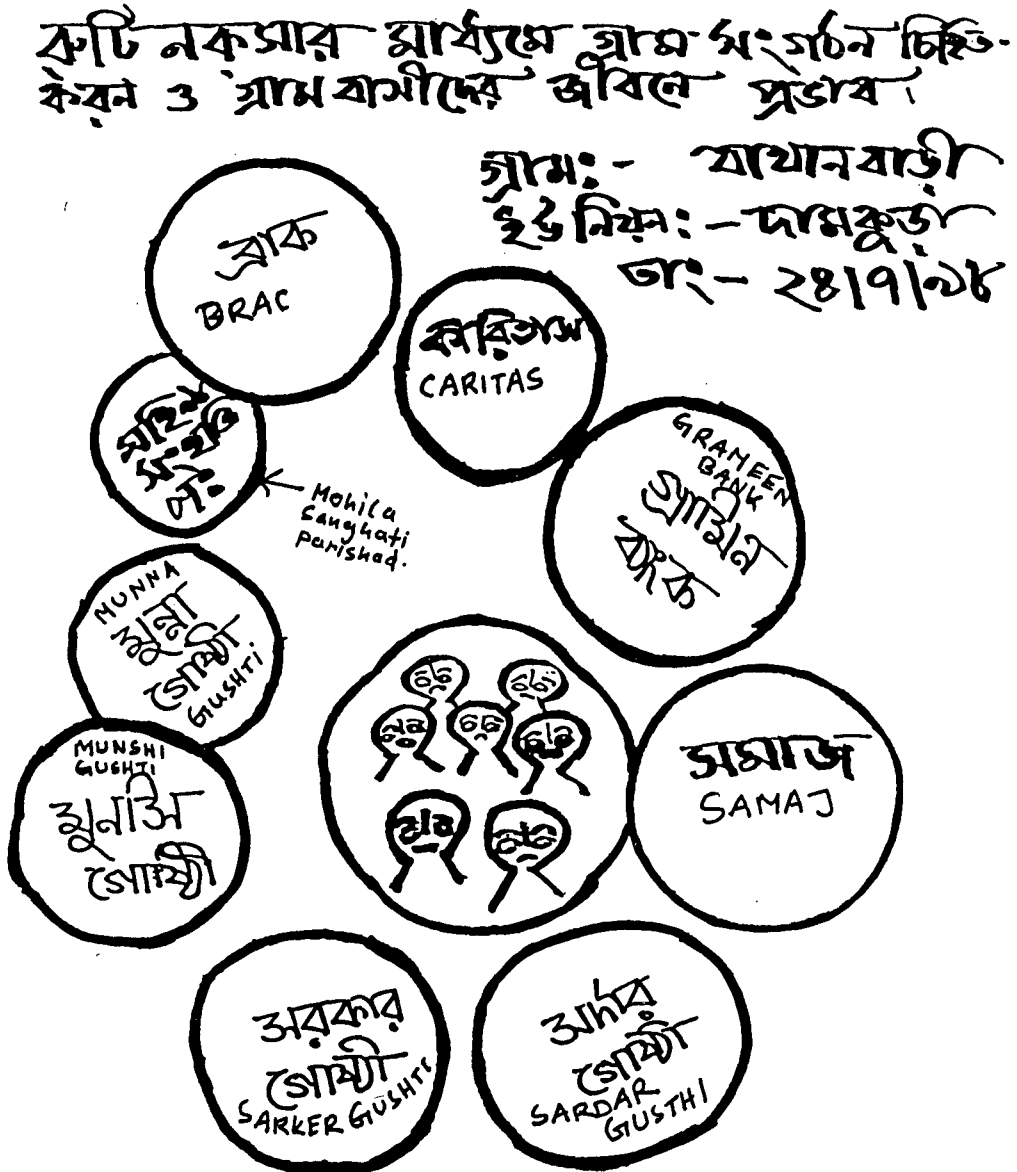 রুটি নকসার মাধ্যমে গ্রাম সংগঠন চিহ্নিত-
করন ও গ্রাম বাসীদের জীবনে প্রভাব।
গ্রাম:- বাথান বাড়ী
ইউনিয়ন:- দামকুড়া
তাং- ২৪/৭/৯৮
ব্রাক
BRAC
কারিতাস
CARITAS
GRAMEEN
BANK
গ্রামিন
ব্যংক
মহিলা
সংহতি
প:
Mohila
Sanghati
parishad.
MUNNA
মুন্না
গোষ্ঠী
GUSHTI
MUNSHI
GUSHTI
মুনসি
গোষ্ঠী
সমাজ
SAMAJ
সরকার
গোষ্ঠী
SARKER GUSHTI
সর্দার
গোষ্ঠী
SARDAR
GUSTHI